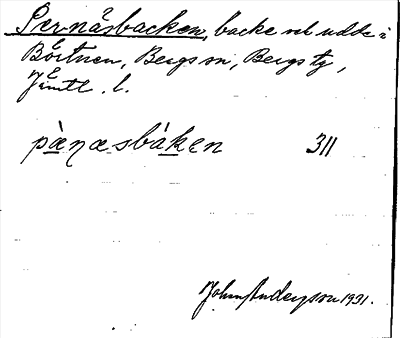 Pernäsbacken, backe vid udde i
Börtnen, Bergs sn, Bergs tg,
Jämtl. l.
pæ̀næsbáken 311
John Anderson 1931.